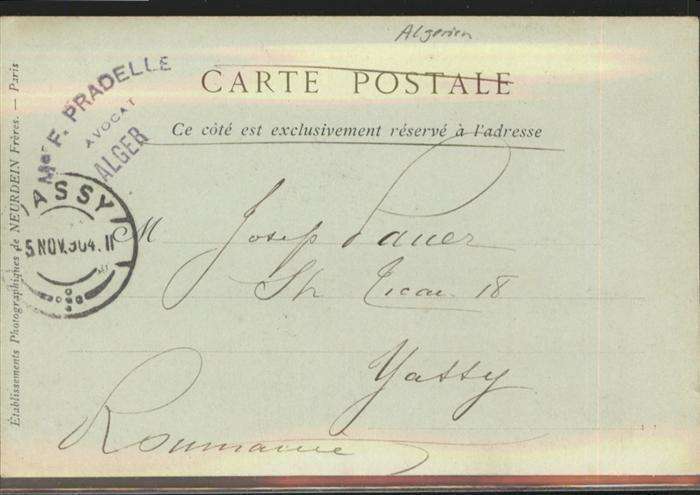 Algerien
CARTE POSTALE
Ce côté est exclusivement réservé à l'adresse
Établissements Photographiques de NEURDEIN Frères. — Paris
F. PRADELLE
AVOCAT
ALGER
ASSY
5 NOV. 904. 11
M Josef Pauer
Str 18
Yassy
Roumanie